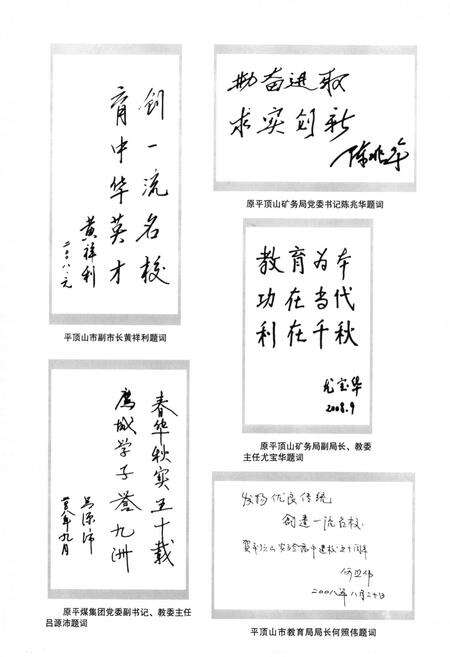 创一流名校
育中华英才
黄祥利
二〇〇八.元
平顶山市副市长黄祥利题词
勤奋进取
求实创新
陈兆华
原平顶山矿务局党委书记陈兆华题词
教育为本
功在当代
利在千秋
尤宝华
2008.9
原平顶山矿务局副局长、教委
主任尤宝华题词
春华秋实五十载
鹰城学子誉九洲
吕源沛
二〇〇八年九月
原平煤集团党委副书记、教委主任
吕源沛题词
发扬优良传统
创建一流名校
贺平顶山实验高中建校五十周年
何照伟
2008年八月二十日
平顶山市教育局局长何照伟题词